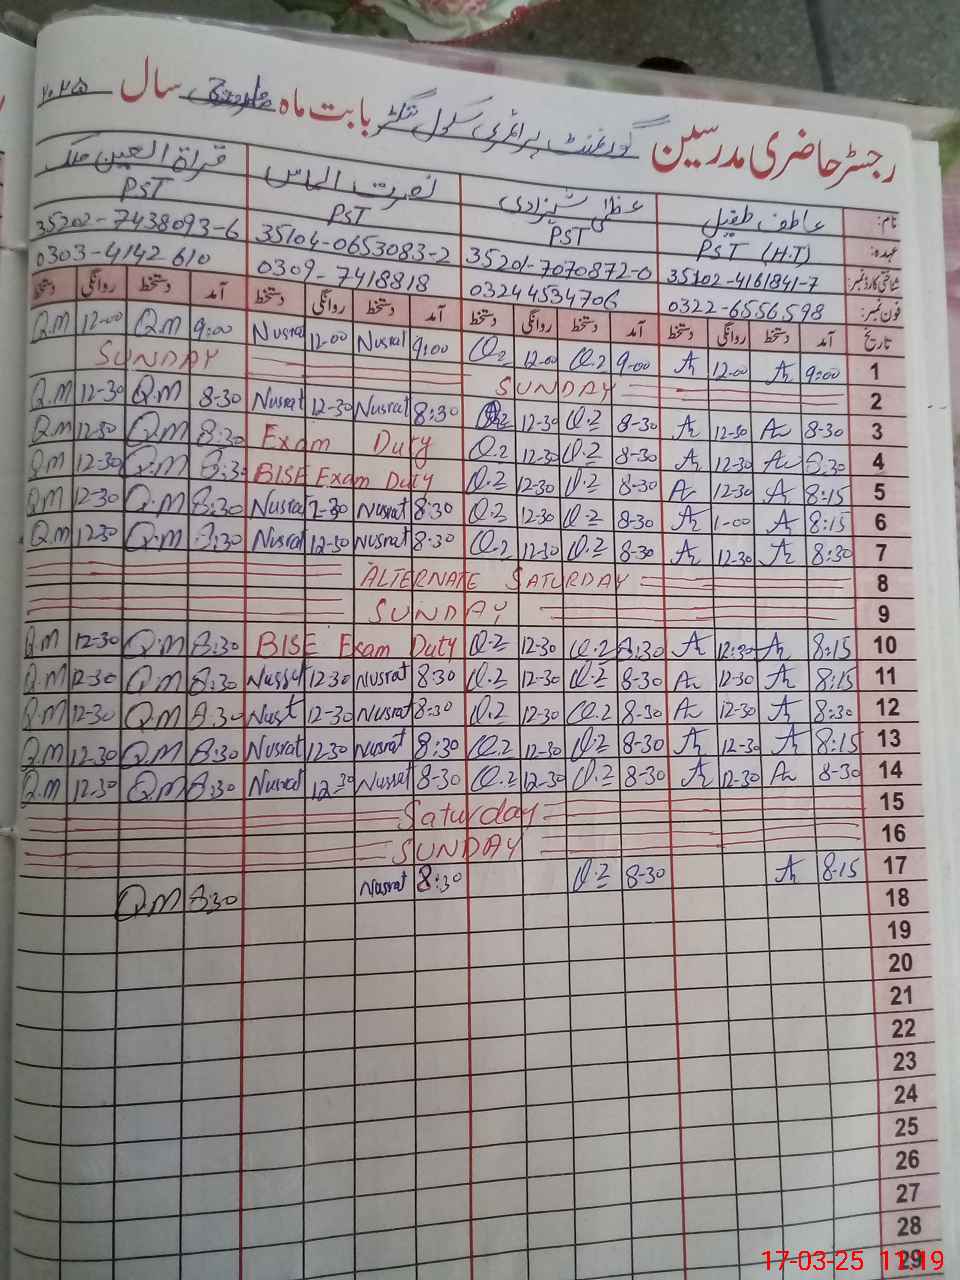 رجسٹر حاضری مدرسین گورنمنٹ پرائمری سکول بابت ماہ مارچ سال ۲۰۲۵
نام: عاطف طفیل عظمیٰ شہزادی نصرت الماس قراۃ العین ملک
عہدہ: PST (H.T) PST PST PST
شناختی کارڈ نمبر: 35102-4161841-7 35201-7070872-0 35104-0653083-2 35202-7438093-6
فون نمبر: 0322-6556598 03244534706 0309-7418818 0303-4142610
تاریخ آمد دستخط روانگی دستخط آمد دستخط روانگی دستخط آمد دستخط روانگی دستخط آمد دستخط روانگی دستخط
1 9:00 12-00 9-00 12-00 9:00 Nusrat 12-00 Nusrat 9:00 Q.M 12-00 Q.M
2 SUNDAY SUNDAY
3 8-30 12-30 8-30 12-30 8:30 Nusrat 12-30 Nusrat 8-30 Q.M 12-30 Q.M
4 8:30 12-30 8-30 12-30 Exam Duty 8:30 Q.M 12-30 Q.M
5 8:15 12-30 8-30 12-30 BISE Exam Duty 8:30 Q.M 12-30 Q.M
6 8:15 1-00 8-30 12-30 8:30 Nusrat Nusrat 8:30 Q.M 12-30 Q.M
7 8:30 12-30 8-30 12-30 8:30 Nusrat 12-30 Nusrat 8:30 Q.M 12-30 Q.M
8 ALTERNATE SATURDAY
9 SUNDAY
10 8:15 12:30 8:30 12-30 BISE Exam Duty 8:30 Q.M 12-30 Q.M
11 8:15 12-30 8-30 12-30 8:30 Nusrat 12-30 Nusrat 8:30 Q.M 12-30 Q.M
12 8:30 12-30 8-30 12-30 8:30 Nusrat 12-30 8:30 Q.M 12-30 Q.M
13 8:15 12-30 8-30 12-30 8:30 Nusrat 12-30 Nusrat 8:30 Q.M 12-30 Q.M
14 8-30 12-30 8-30 12-30 8-30 Nusrat 12-30 Nusrat 8:30 Q.M 12-30 Q.M
15 Saturday
16 SUNDAY
17 8-15 8-30 8:30 Nusrat 8:30 Q.M
18
19
20
21
22
23
24
25
26
27
28
29
17-03-25 11:19